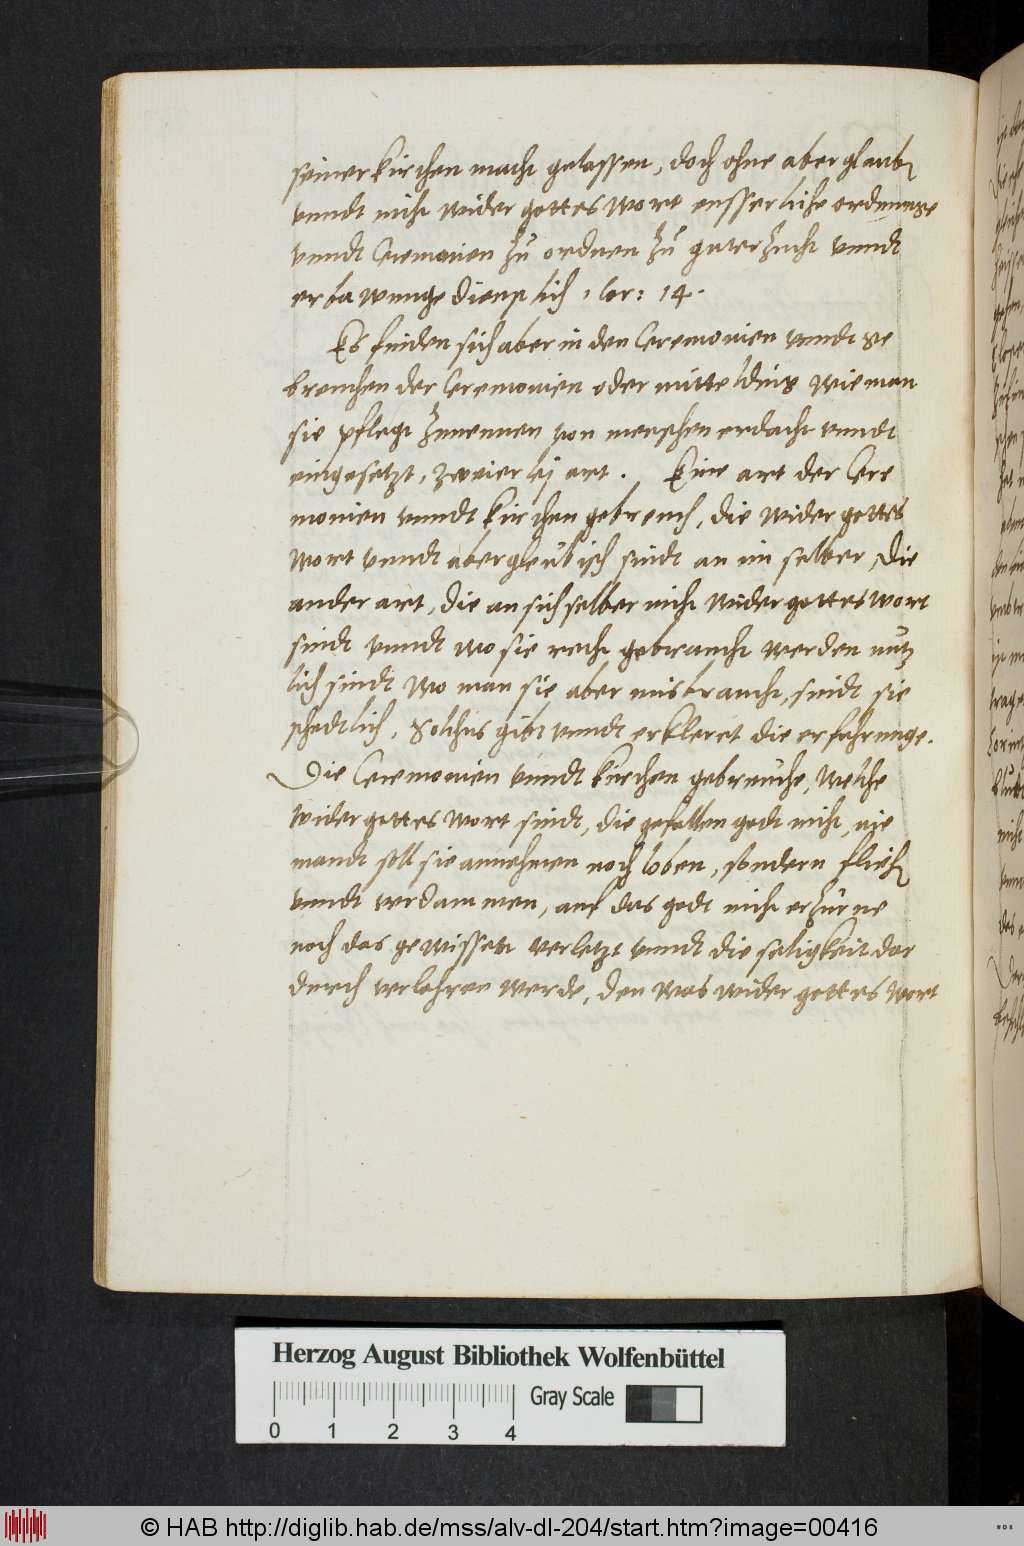 seiner kirchen macht gelassen, doch ohne aberglauben
vnndt nicht wider gottes wort eusserliche ordnunge
vnndt Ceremonien zu ordnen zu guter zucht vnndt
erbawunge dienstlich 1 Cor: 14.
Es finden sich aber in den Ceremonien vnndt ge
breuchen der Ceremonien oder mittelding wie man
sie pflegt zunennen von menschen erdacht vnndt
eingesetzt, zweierlej art. Eine art der Cere
monien vnndt kirchen gebreuch, die wider gottes
wort vnndt abergleubisch sindt an im selber, die
ander art, die an sich selber nicht wider gottes wort
sindt vnndt wo sie recht gebraucht werden nutz
lich sindt wo man sie aber misbraucht, sindt sie
schedtlich, Solchs gibt vnndt erkleret die erfahrunge.
Die Ceremonien vnndt kirchen gebreuche, welche
wider gottes wort sindt, die gefallen godt nicht, nie
mandt soll sie annehmen noch loben, sondern fliehen
vnndt verdammen, auf das godt nicht erzürne
noch das gewissen verletzt vnndt die seligkeit dar
durch verlohren werde, den was wider gottes wort
Herzog August Bibliothek Wolfenbüttel
0 1 2 3 4 Gray Scale
© HAB http://diglib.hab.de/mss/alv-dl-204/start.htm?image=00416